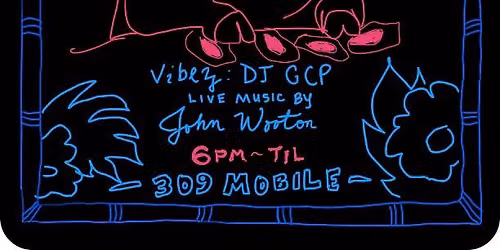 Vibez: DJ GCP
LIVE MUSIC BY
John Wooton
6PM ~ TIL
309 MOBILE